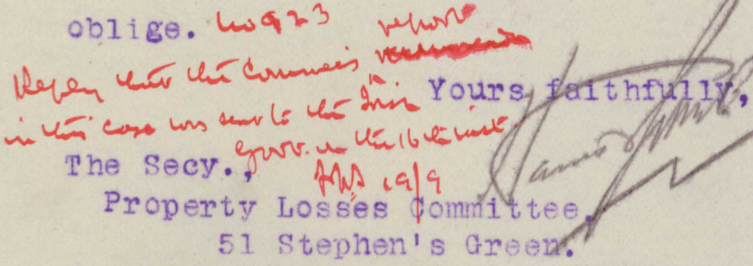 oblige.
No 923 report
Reply that the Commees
in this case was sent to the Irish
Govr. on the 16th inst
19/9
Yours faithfully,
The Secy.,
Property Losses Committee,
51 Stephen's Green.